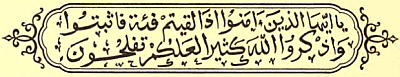 يا أيها الذين ءامنوا إذا لقيتم فئة فاثبتوا
واذكروا الله كثيرا لعلكم تفلحون